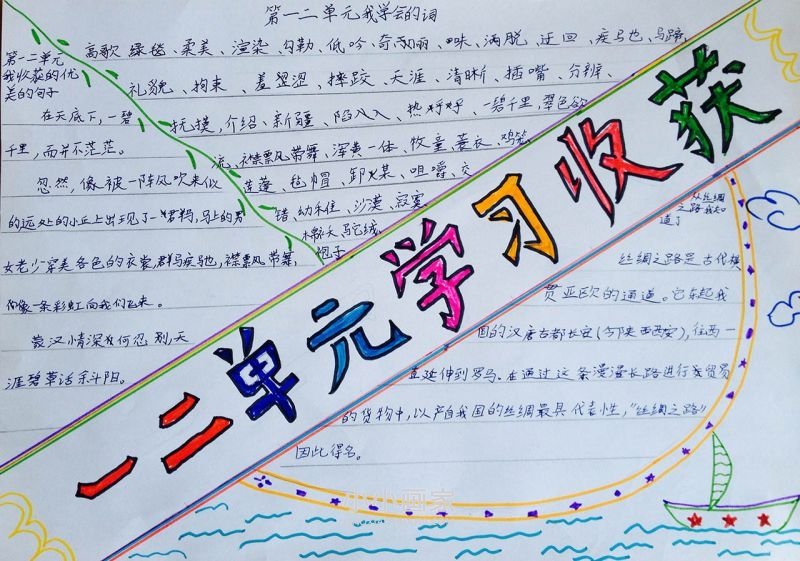 第一二单元我学会的词
高歌、绿毯、柔美、渲染、勾勒、低吟、奇丽、味、洒脱、迂回、疾马也、马蹄、
礼貌、拘束、羞涩、摔跤、天涯、清晰、插嘴、分辨、
抚摸,介绍、新疆、陷入、热乎乎、一碧千里,翠色欲
流、襟飘带舞、浑为一体、牧童、蓑衣、鸡笼
莲蓬、毡帽、卸煤、咀嚼、交
错、幼稚、沙漠、寂寞
棉袄、驼绒、
袍子
第一二单元
我学获的优
美的句子
在天底下,一碧
千里,而并不茫茫。
忽然,像被一阵风吹来似
的远处的小丘上出现了一群马,马上的男
女老少穿着各色的衣裳,群马疾驰,襟飘带舞,
像一条彩虹向我们飞来。
蒙汉情深何忍别,天
涯碧草话斜阳。
一二单元学习收获
从丝绸
之路我知
道了
丝绸之路是古代横
贯亚欧的通道。它东起我
国的汉唐古都长安(今陕西西安),往西一
直延伸到罗马。在通过这条漫漫长路进行贸易
的货物中,以产自我国的丝绸最具代表性,"丝绸之路"
因此得名。